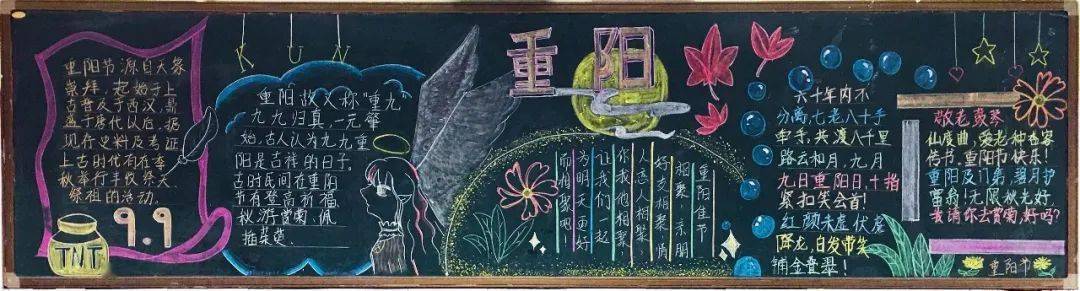 重阳节源自天象
崇拜,起始于上
古普及于西汉,鼎
盛于唐代以后,据
现存史料及考证
上古时代有在季
秋举行丰收祭天、
祭祖的活动。
9.9
TNT
KUN
重阳故又称“重九”
九九归真,一元肇
始,古人认为九九重
阳是吉祥的日子。
古时民间在重阳
节有登高祈福、
秋游赏菊、佩
插茱萸、
重阳
重阳佳节
相聚,亲朋
好友相聚,情
人恋人相聚,
你我他相聚,
让我们一起
为明天更好
而相聚吧!
六十年内不
分离,七老八十手
牵手,共渡八千里
路云和月,九月
九日重阳日,十指
紧扣笑会首!
红颜未虚伏虎
降龙,白发带笑
铺金叠翠!
敬老
仙度曲,爱老种杏客
传书。重阳节快乐!
重阳及门弟,碧月护
富翁!无限秋光好,
我请你去赏菊,好吗?
重阳节